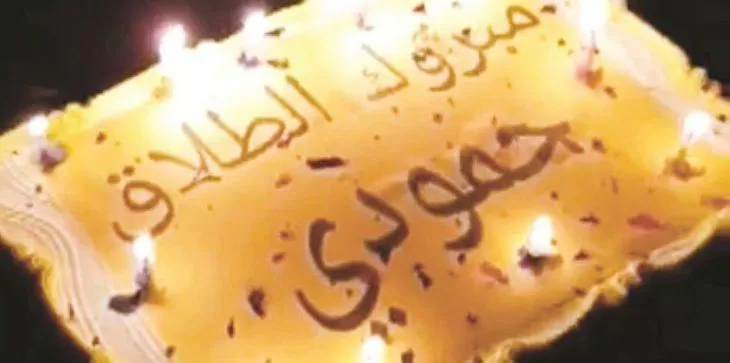 مبروك الطلاق
حمودي